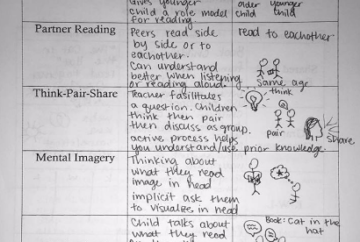 Gives younger
child a role model
for reading.
older younger
child child
Partner Reading
Peers read side
by side or to
eachother.
Can understand
better when listening
or reading aloud.
read to eachother
same age
Think-Pair-Share
Teacher fasilitates
a question. Children
think then pair
then discuss as group.
active process helps
you understand/use prior knowledge.
think
pair
share
Mental Imagery
Thinking about
what they read
image in head
implicit ask them
to visualize in head
Child talks about
what they read
Book: Cat in the
hat